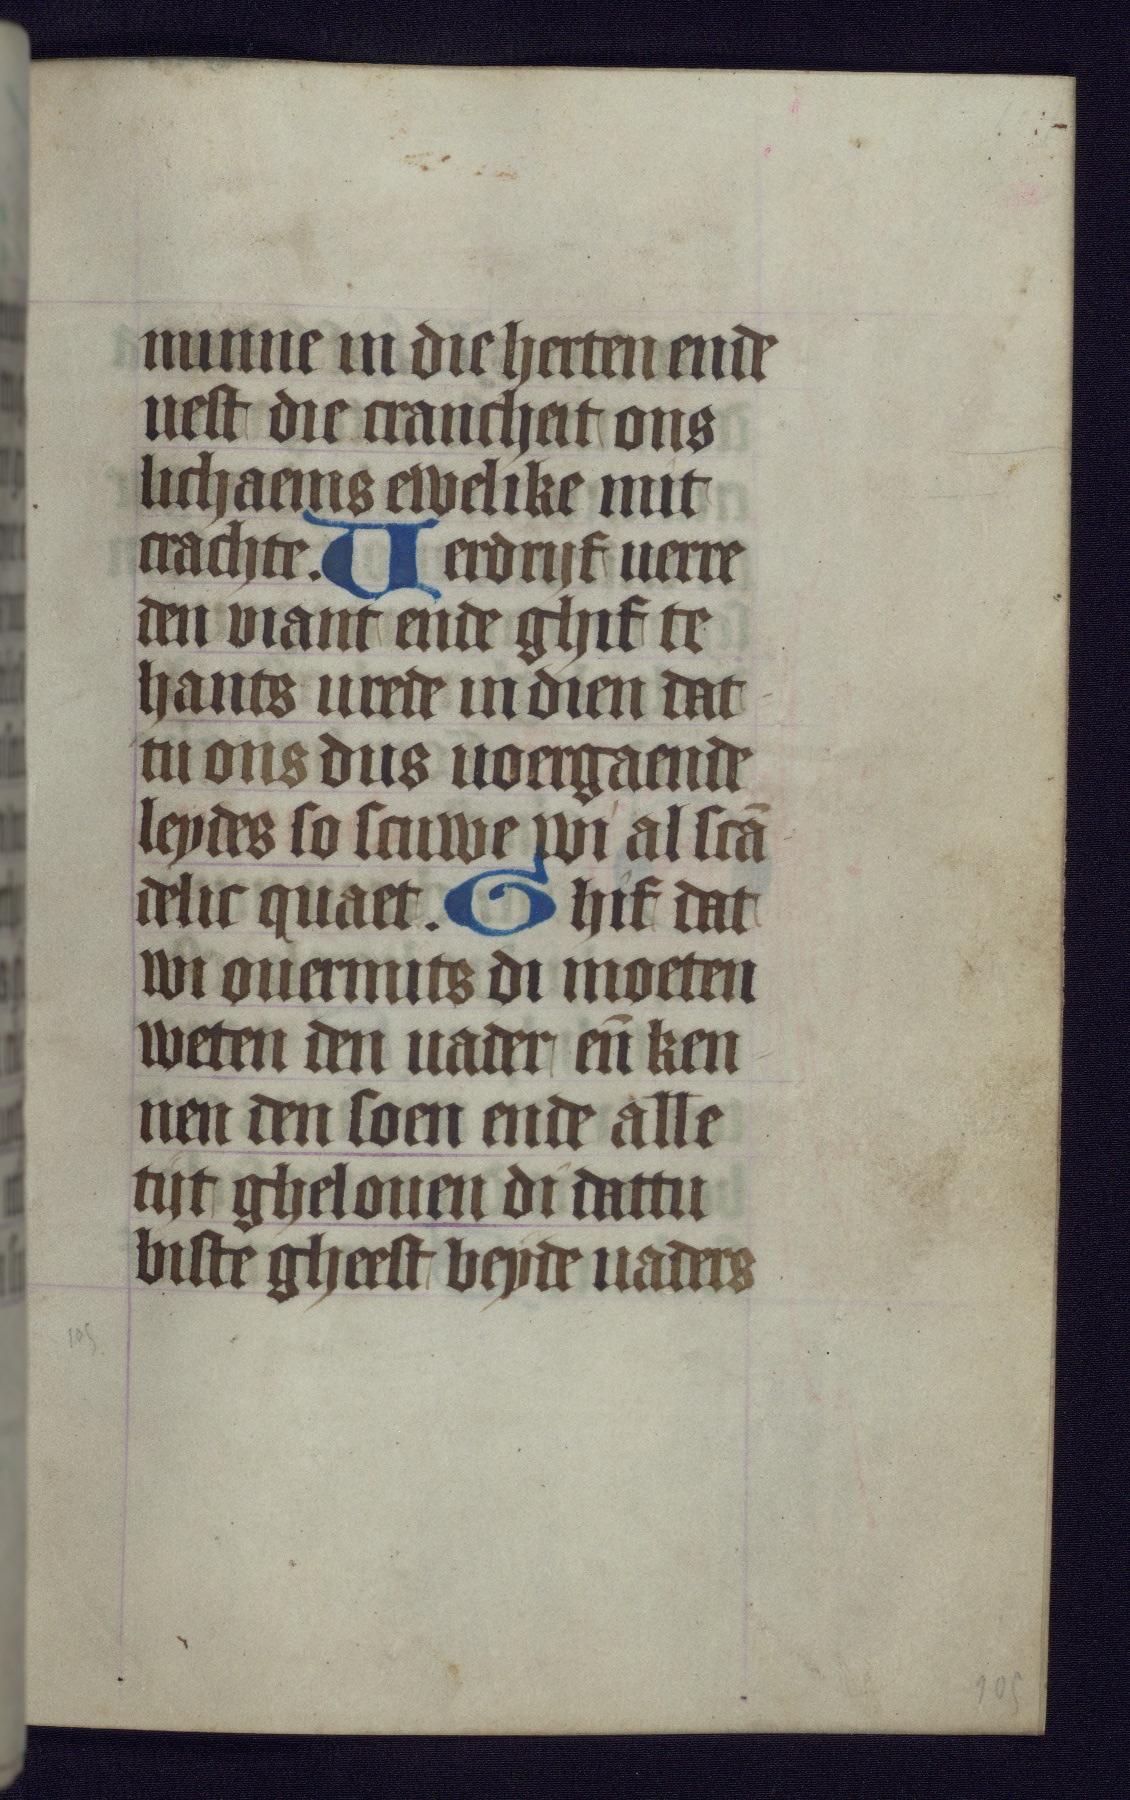 minne in die herten ende
uest die crancheit ons
lichaems ewelike mit
crachte. Uerdrijf uerre
den viant ende ghif te
hants urede in dien dat
tu ons dus uoergaende
leydes so scuwe wi al scā
delic quaet. Ghif dat
wi ouermits di moeten
weten den uader en̄ ken
nen den soen ende alle
tijt ghelouen di dattu
biste gheest beyde uaders
105
105